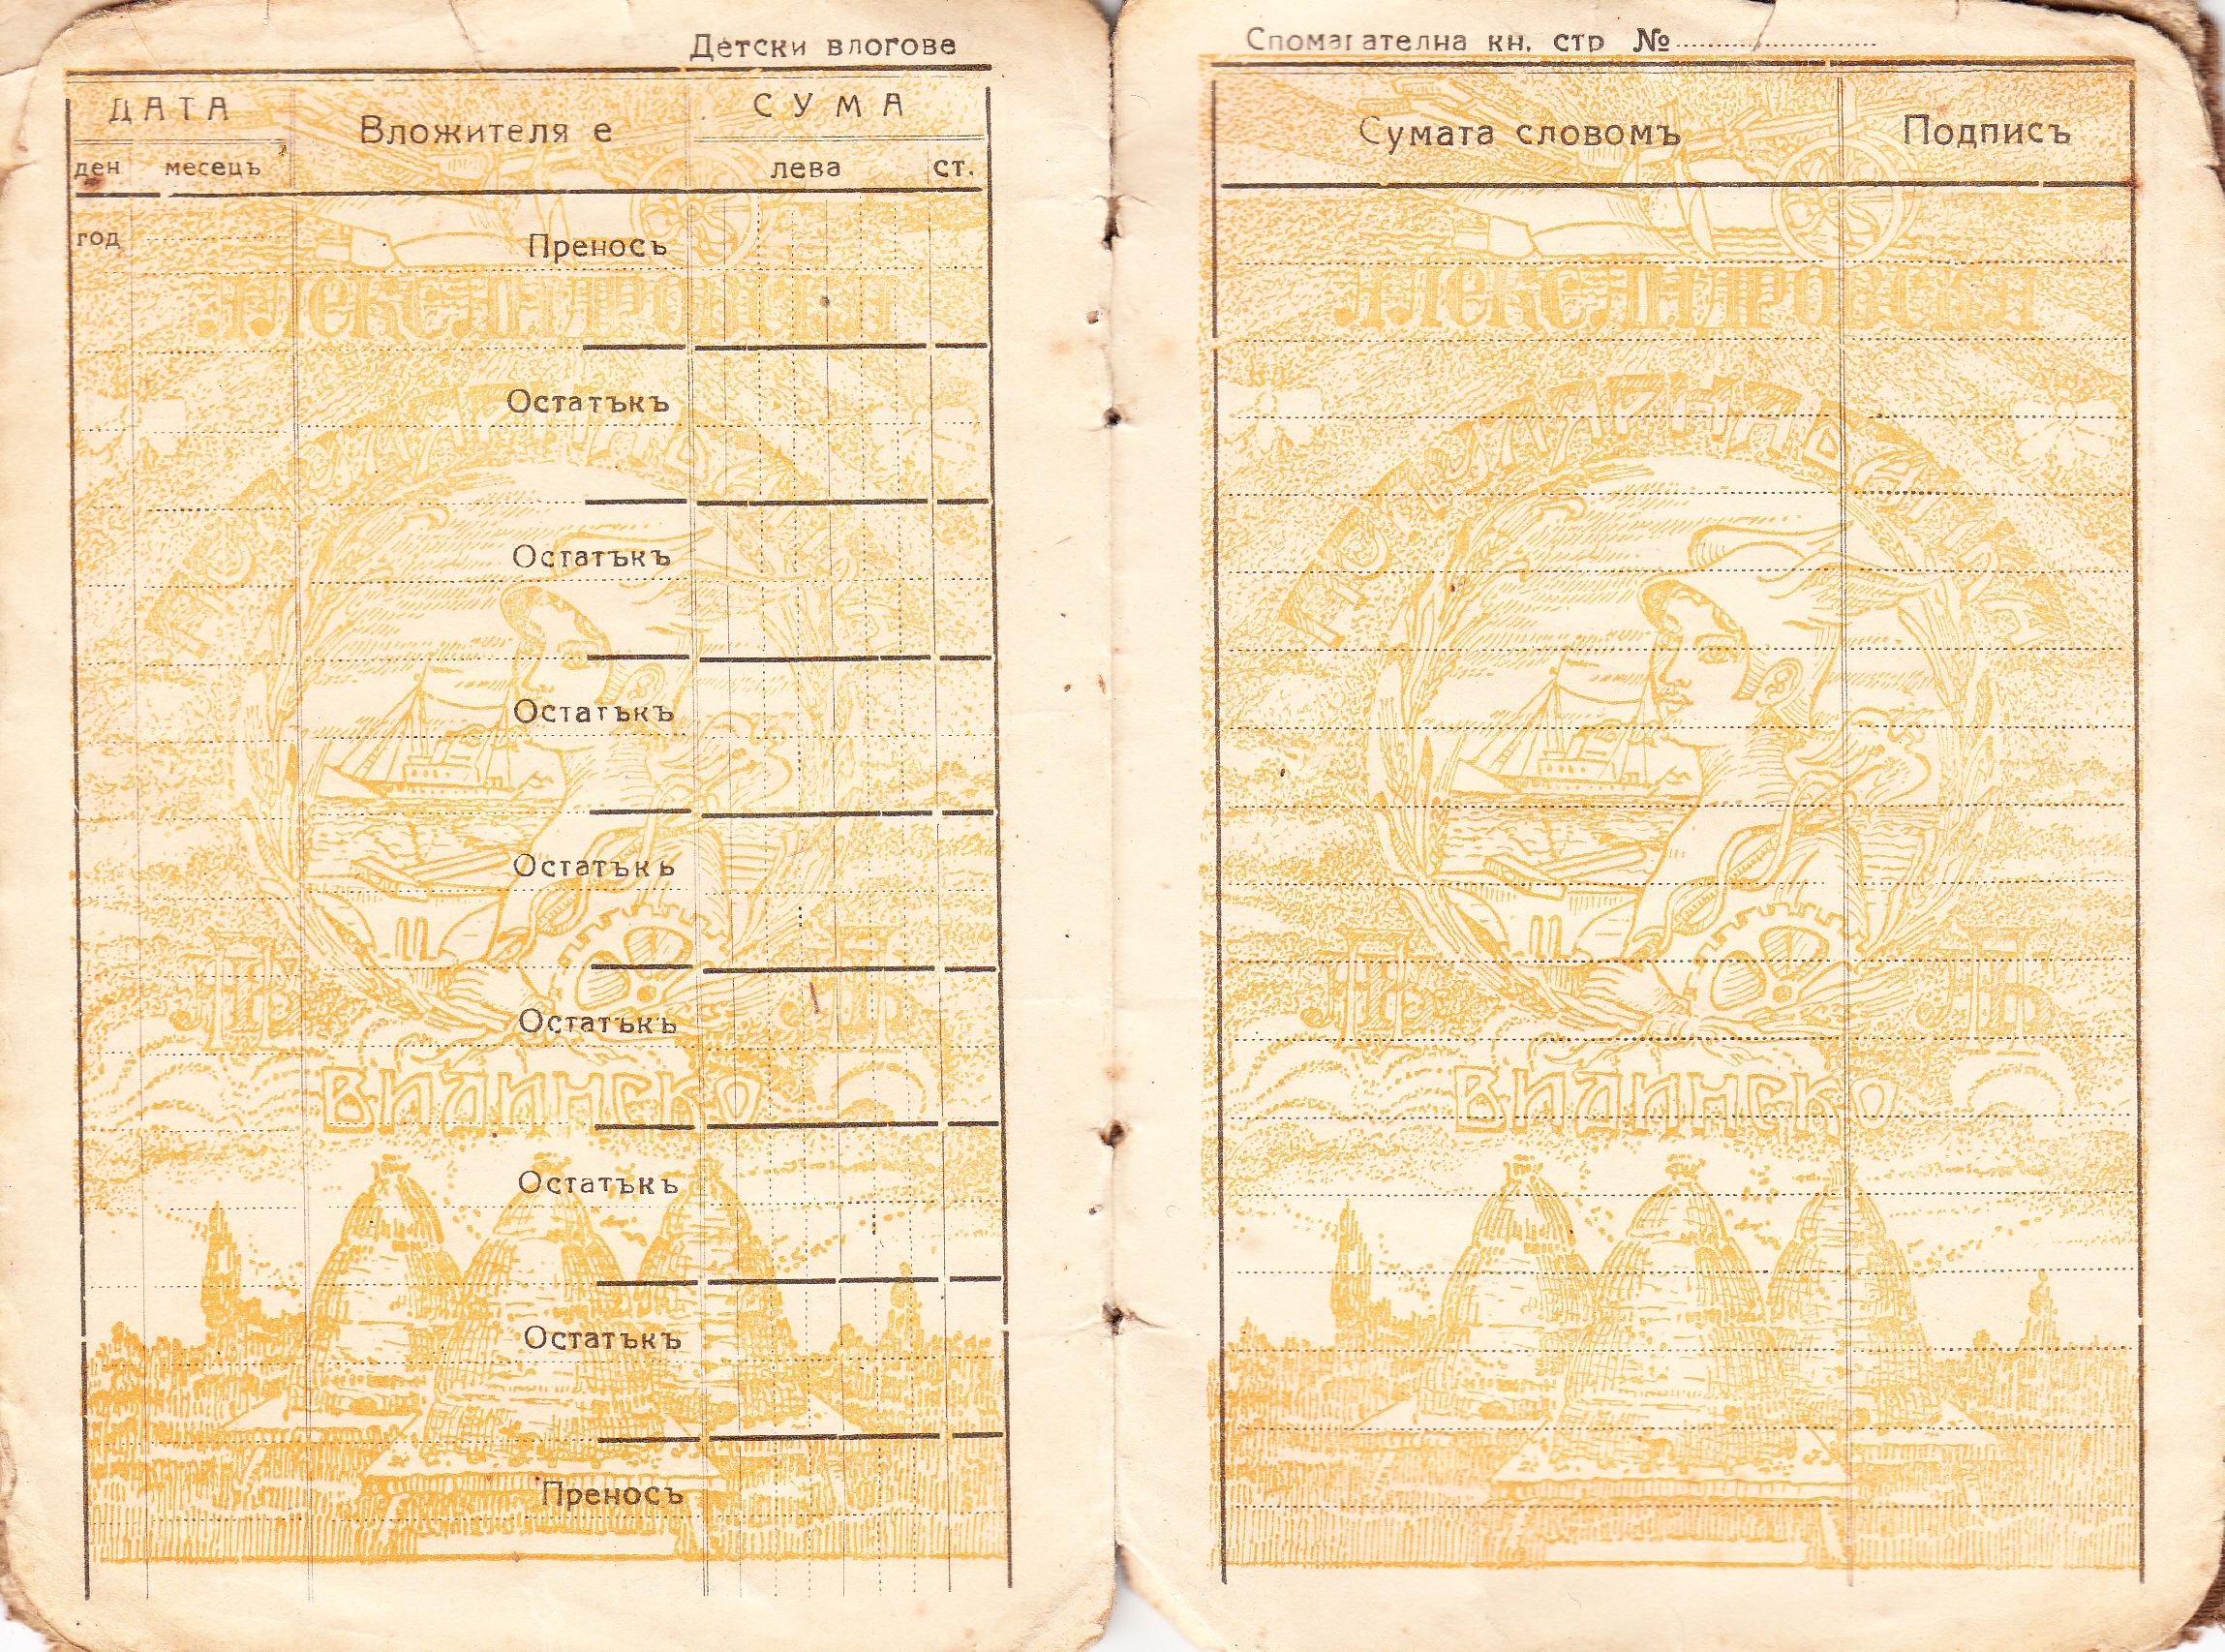 Детски влогове
ДАТА
Вложителя е
СУМА
ден
месецъ
лева
ст.
год
Преносъ
Александровска
Остатъкъ
Остатъкъ
Остатъкъ
Остатъкъ
Остатъкъ
ВИДИНСКО
Остатъкъ
Остатъкъ
Преносъ
Спомагателна кн. стр №
Сумата словомъ
Подписъ
Александровска
ВИДИНСКО